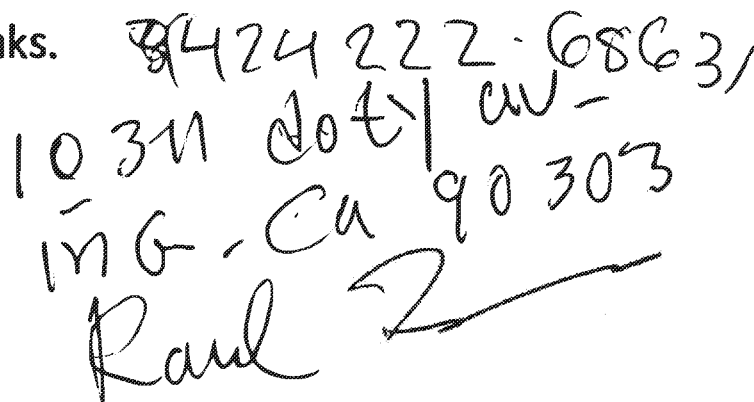 nks. 424 222-6863,
10311 doty av-
ing. Ca 90303
Raul